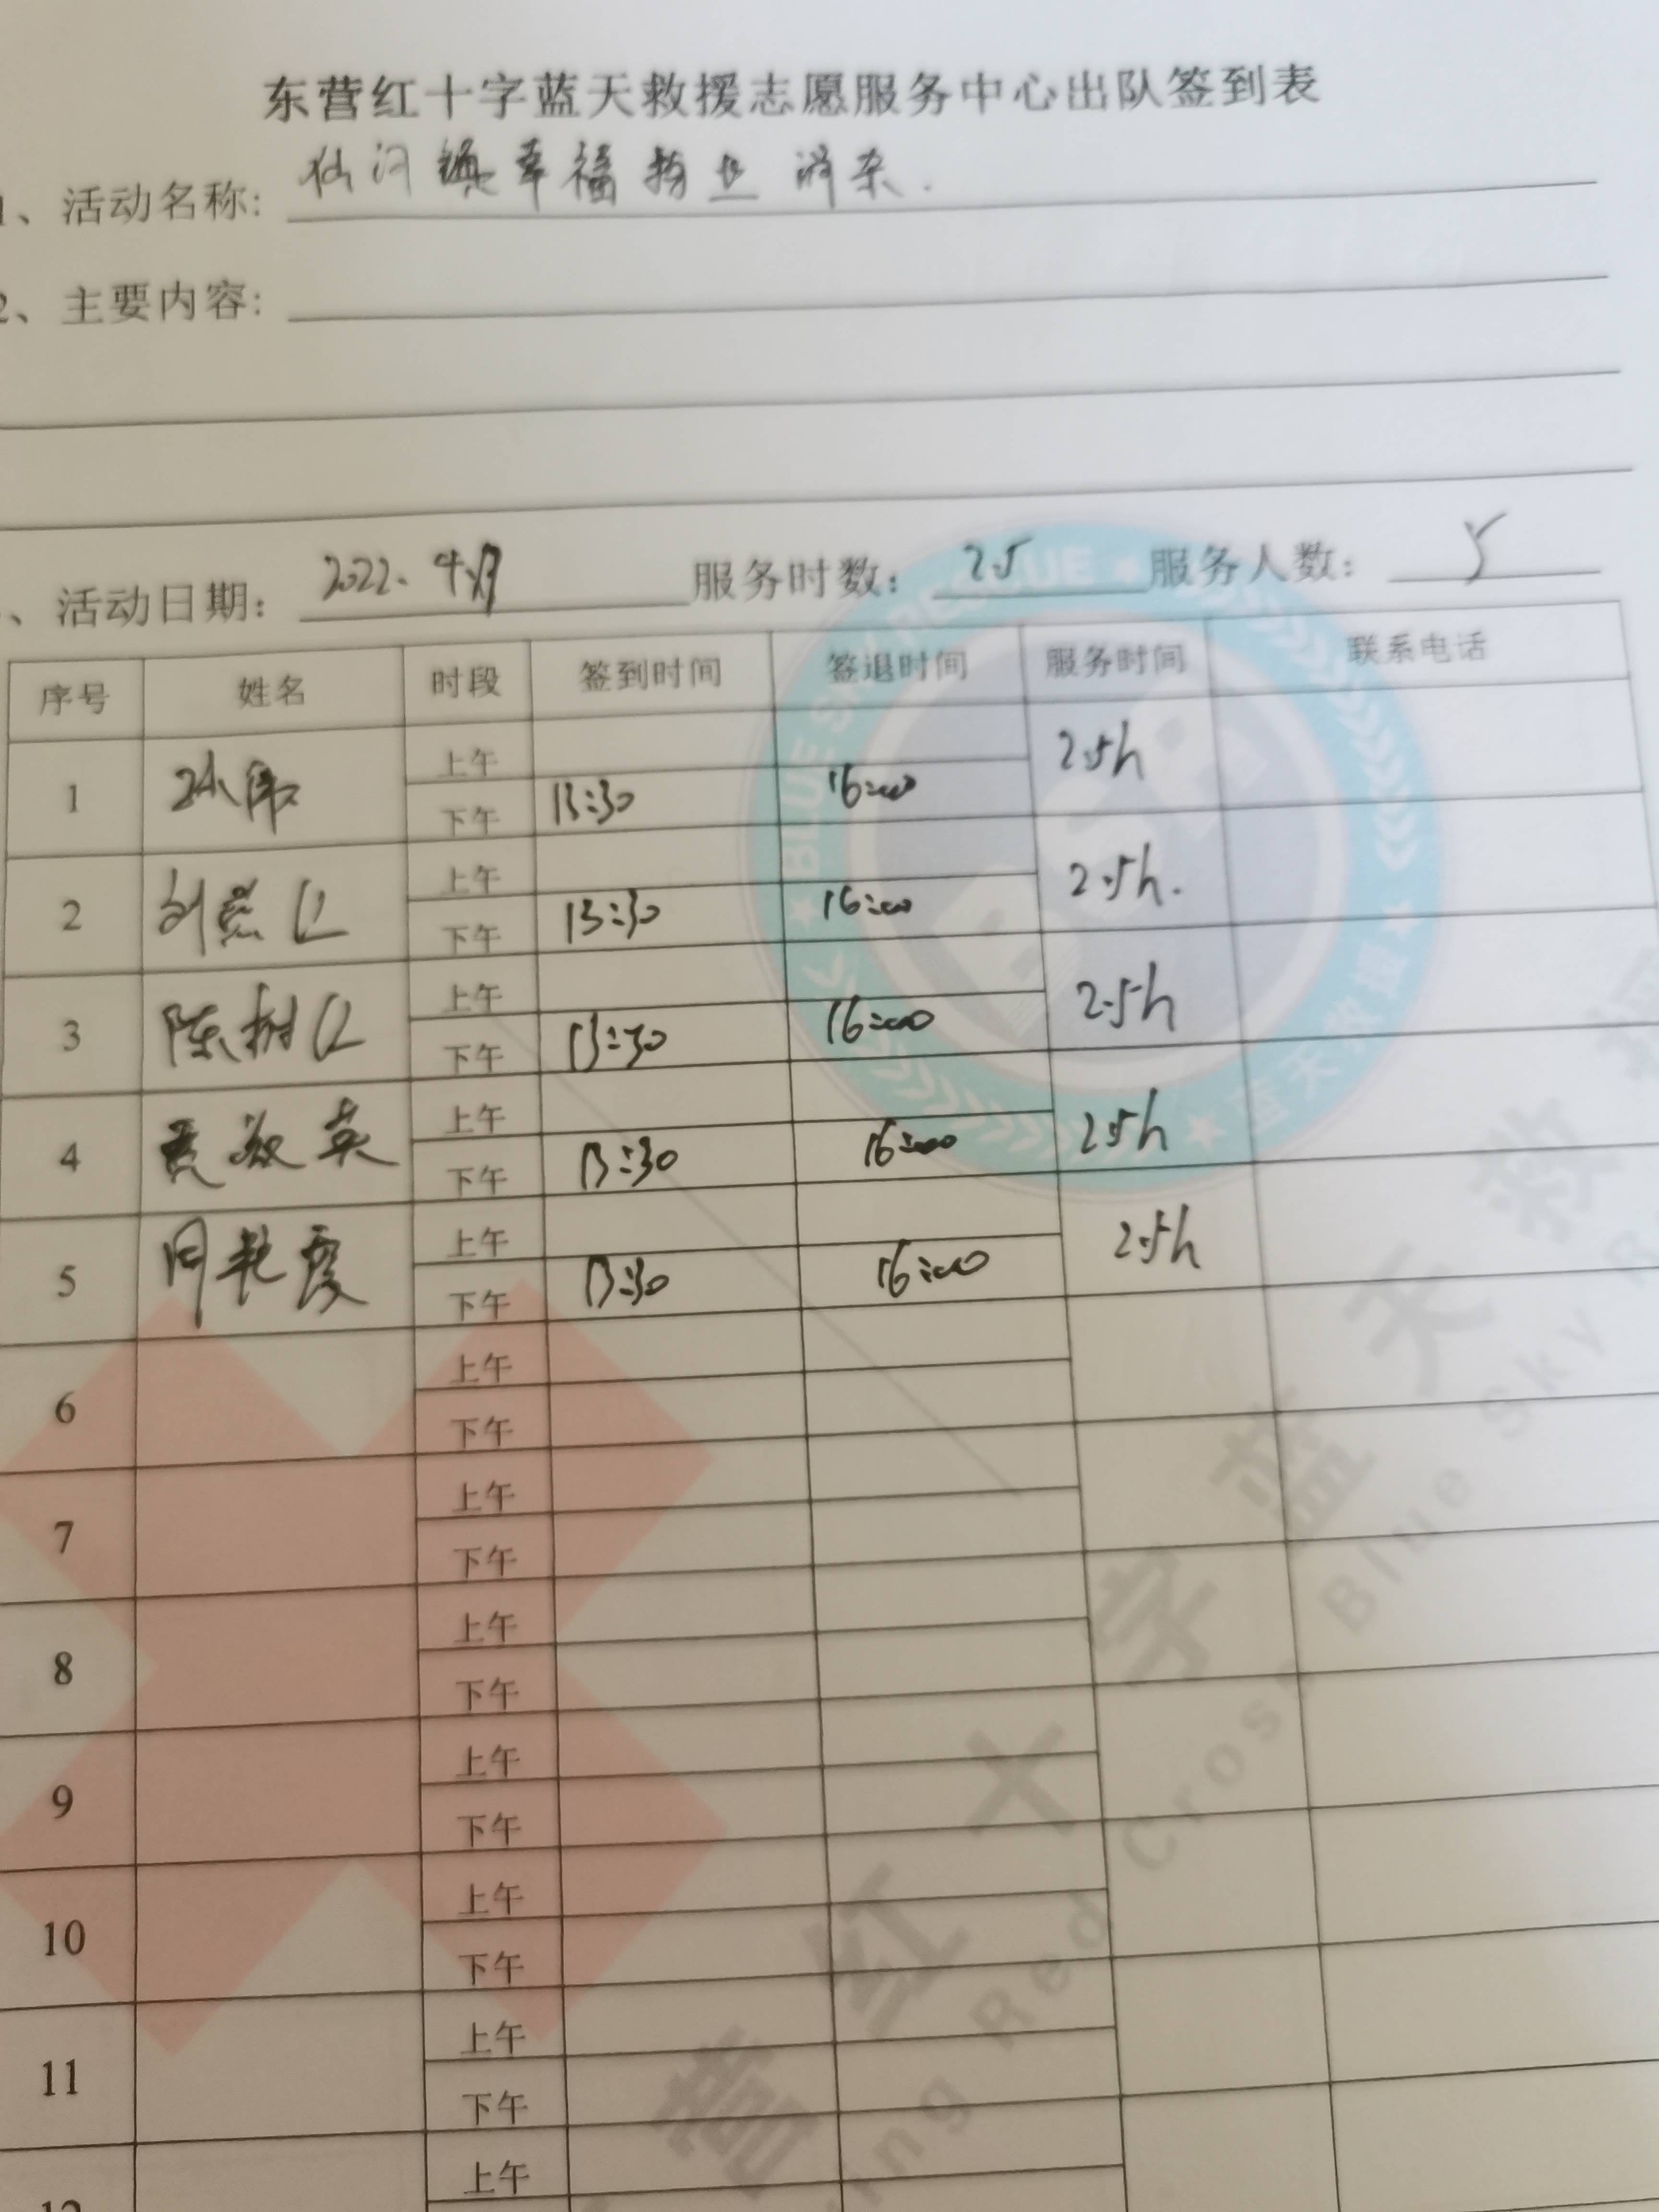 东营红十字蓝天救援志愿服务中心出队签到表
1、活动名称: 仙河镇幸福物业消杀.
2、主要内容:
、活动日期: 2022. 4月 服务时数: 2.5 服务人数: 5
序号 姓名 时段 签到时间 签退时间 服务时间 联系电话
1 孙伟 上午 2.5h
下午 13:30 16:00
2 上午 2.5h.
下午 13:30 16:00
3 陈树 上午 2.5h
下午 13:30 16:00
4 英 上午 2.5h
下午 13:30 16:00
5 周艳霞 上午 2.5h
下午 13:30 16:00
6 上午
下午
7 上午
下午
8 上午
下午
9 上午
下午
10 上午
下午
11 上午
下午
12 上午
BLUE SKY RESCUE
蓝天救援
BSR
营红十字蓝天救援
ing Red Cross Blue Sky R